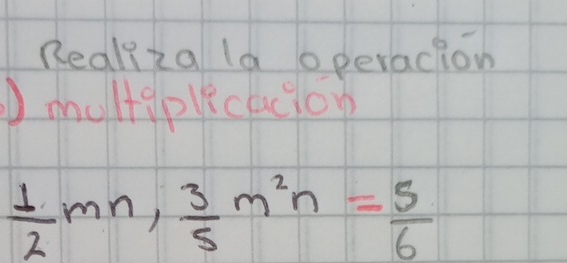 Realiza la operación
) multiplicación
1/2 mn, 3/5 m²n = 5/6